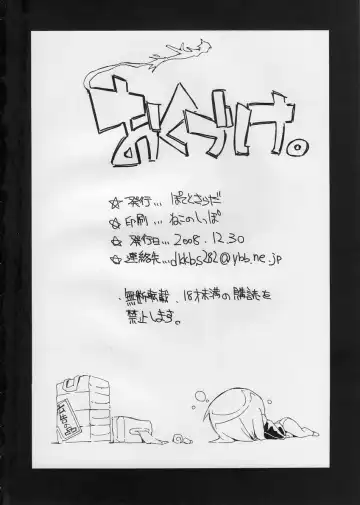 おくづけ。
☆ 発行... ぽてとさらだ
☆ 印刷... ねこのしっぽ
☆ 発行日... 2008.12.30
☆ 連絡先... dkkbs282@ybb.ne.jp
・無断転載、18才未満の購読を
禁止します。